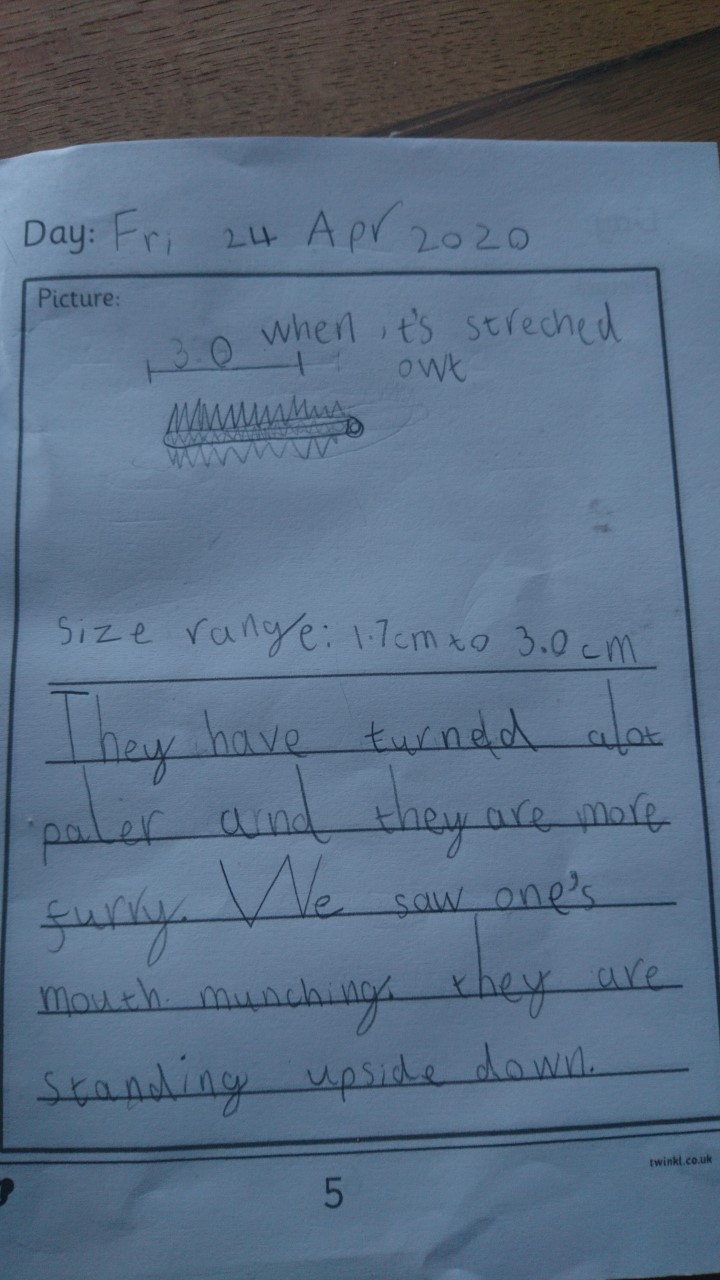 Day: Fri 24 Apr 2020
Picture:
3.0 when it's streched
owt
size range: 1.7cm to 3.0cm
They have turned alot
paler and they are more
furry. We saw one's
mouth munching. they are
standing upside down.
twinkl.co.uk
5